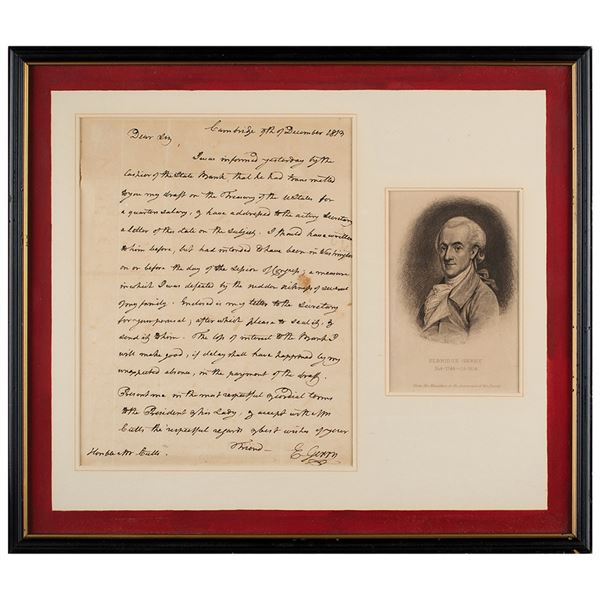 Cambridge 9th of December 1813
Dear Sir,
I was informed yesterday by the
Cashier of the State Bank, that he had transmitted
to you my draft on the Treasury of the UStates for
a quarters salary, & have addressed to the acting Secretary
a letter of this date on the subject. I should have written
to him before, but had intended to have been in Washington
on or before the day of the Session of Congress; a measure
in which I was defeated by the sudden sickness of several
of my family. Enclosed is my letter to the Secretary
for your perusal; after which please to seal it, &
send it to him. The loss of interest to the Bank I
will make good, if delay shall have happened by my
unexpected absence, in the payment of the draft.
Present me in the most respectful & cordial terms
to the President & his Lady, & accept with Mrs
Cutts the respectful regards & best wishes of your
Friend
E. Gerry
Honble Mr Cutts.
ELBRIDGE GERRY